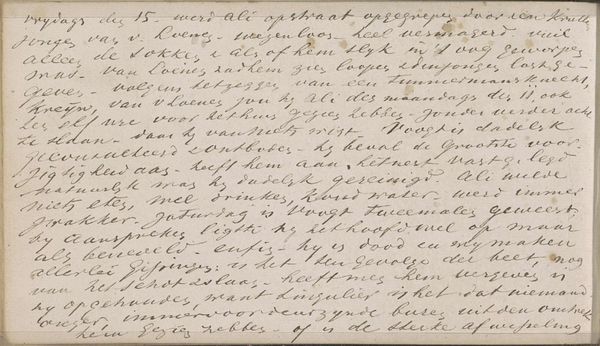 vrydags des 15. werd Ali op straat opgegrepen door een
jonges van v. Loenen - wezenloos - heel vermagerd, vuil
alleen de sokken & als of hem slyk in 't oog geworpen
was - van Loenen had hem zien loopen & den jongen last ge-
geven - volgens het zeggen van een timmermansknecht,
Kreyn, van v Loenen zou hy Ali des maandags des 11 ook
ten elf ure voor het huis gezien hebben - zonder verder acht
te slaan - daar hy van niets wist. Voogt is dadelyk
geconsulteerd & ontboden - hy beval de grootste voor-
zigtigheid aan - heeft hem aan het nest vast gelegd
natuurlyk was hy dadelyk gereinigd Ali wilde
niets eten, wel drinken, koud water - werd immer
strakker - Zaturdag is Voogt tweemalen geweest,
by aanspreken ligtte hy het hoofd wel op maar
als beneveld - enfin - hy is dood en wy maken
allerlei gissingen: is het ten gevolge der beet, nog
van het schot - heeft men hem vergeven, is
hy opgehouden, want singulier is het dat niemand
onzer immervoordeurzynde buren uit den omtrek
hem gezien hebben - of is de sterke afwisseling